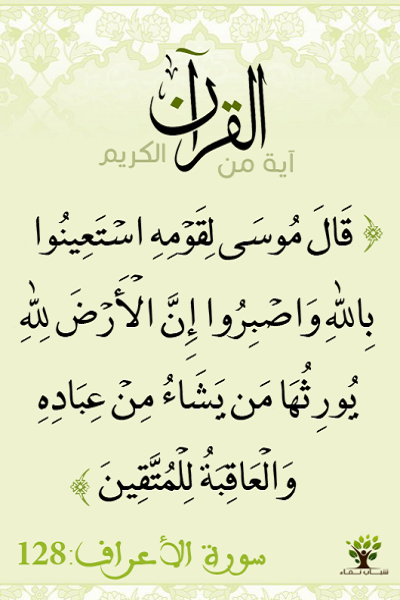 القرآن
آية من الكريم
﴿ قَالَ مُوسَى لِقَوْمِهِ اسْتَعِينُوا
بِاللهِ وَاصْبِرُوا إِنَّ الْأَرْضَ لِلهِ
يُورِثُهَا مَن يَشَاءُ مِنْ عِبَادِهِ
وَالْعَاقِبَةُ لِلْمُتَّقِينَ ﴾
سورة الأعراف:128
شباب نماء